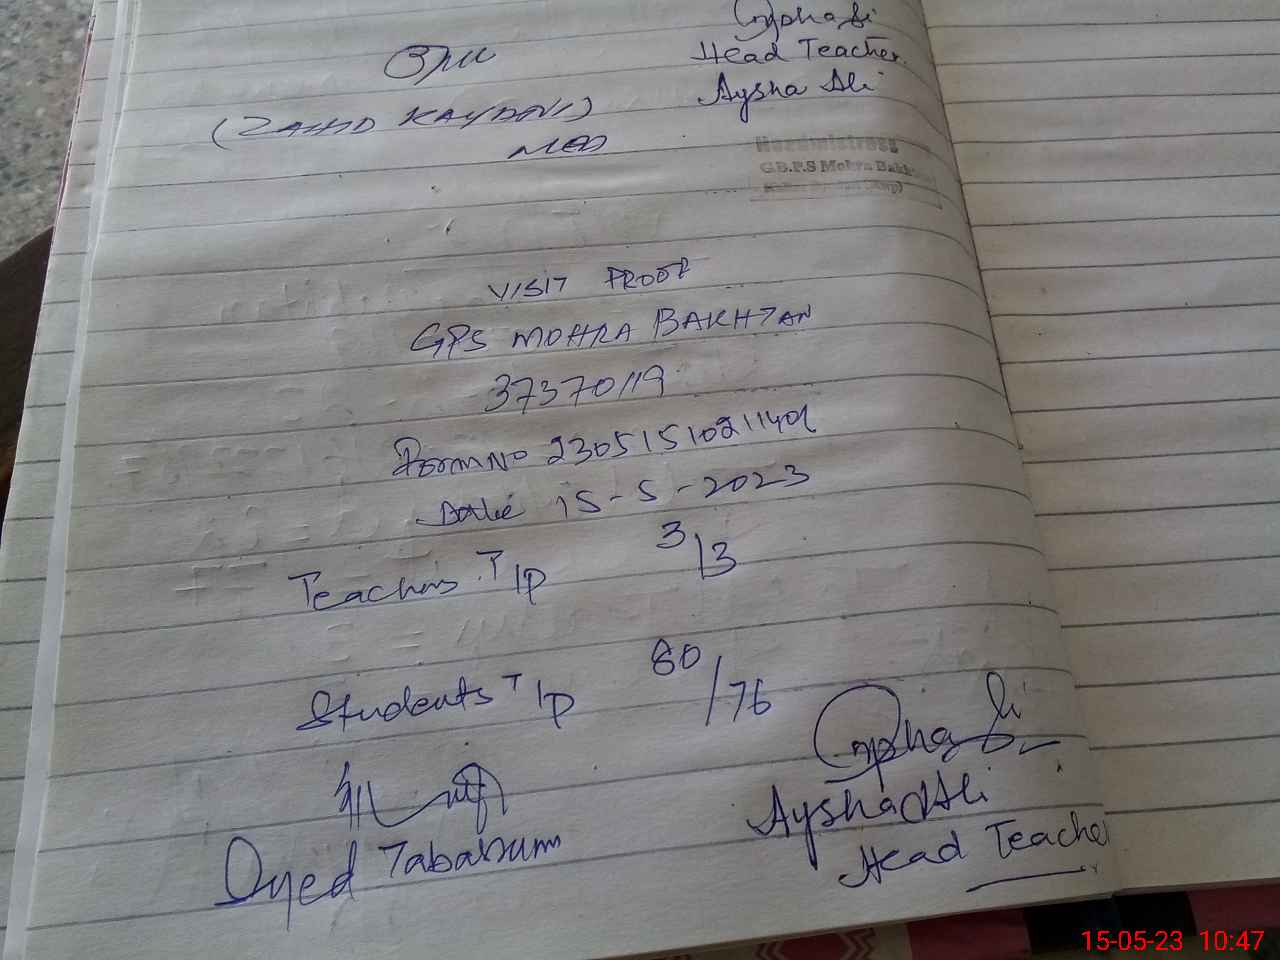 Head Teacher
Aysha Ali
(ZAHID KAYANI)
Headmistress
G.B.P.S Mohra Bakhtan
VISIT PROOF
GPS MOHRA BAKHTAN
37370119
Form No 23051510211401
Date 15-5-2023
Teachers T/P 3/3
Students T/P 80/76
Syed Tabassum
Aysha Ali
Head Teacher
15-05-23 10:47